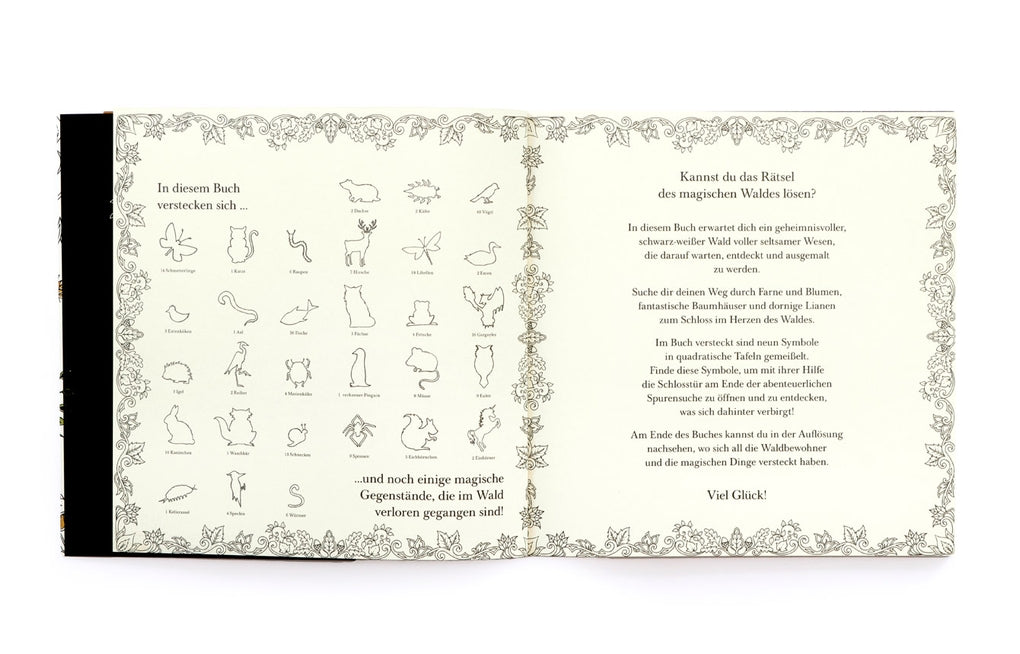 In diesem Buch
verstecken sich ...
2 Dachse
2 Käfer
1 Katze
6 Raupen
5 Hirsche
2 Enten
3 Entenküken
1 Aal
3 Füchse
1 Igel
2 Reiher
1 verlorener Pinguin
8 Mäuse
9 Eulen
1 Waschbär
5 Eichhörnchen
2 Einhörner
4 Spechte
6 Würmer
...und noch einige magische
Gegenstände, die im Wald
verloren gegangen sind!
Kannst du das Rätsel
des magischen Waldes lösen?
In diesem Buch erwartet dich ein geheimnisvoller,
schwarz-weißer Wald voller seltsamer Wesen,
die darauf warten, entdeckt und ausgemalt
zu werden.
Suche dir deinen Weg durch Farne und Blumen,
fantastische Baumhäuser und dornige Lianen
zum Schloss im Herzen des Waldes.
Im Buch versteckt sind neun Symbole
in quadratische Tafeln gemeißelt.
Finde diese Symbole, um mit ihrer Hilfe
die Schlosstür am Ende der abenteuerlichen
Spurensuche zu öffnen und zu entdecken,
was sich dahinter verbirgt!
Am Ende des Buches kannst du in der Auflösung
nachsehen, wo sich all die Waldbewohner
und die magischen Dinge versteckt haben.
Viel Glück!